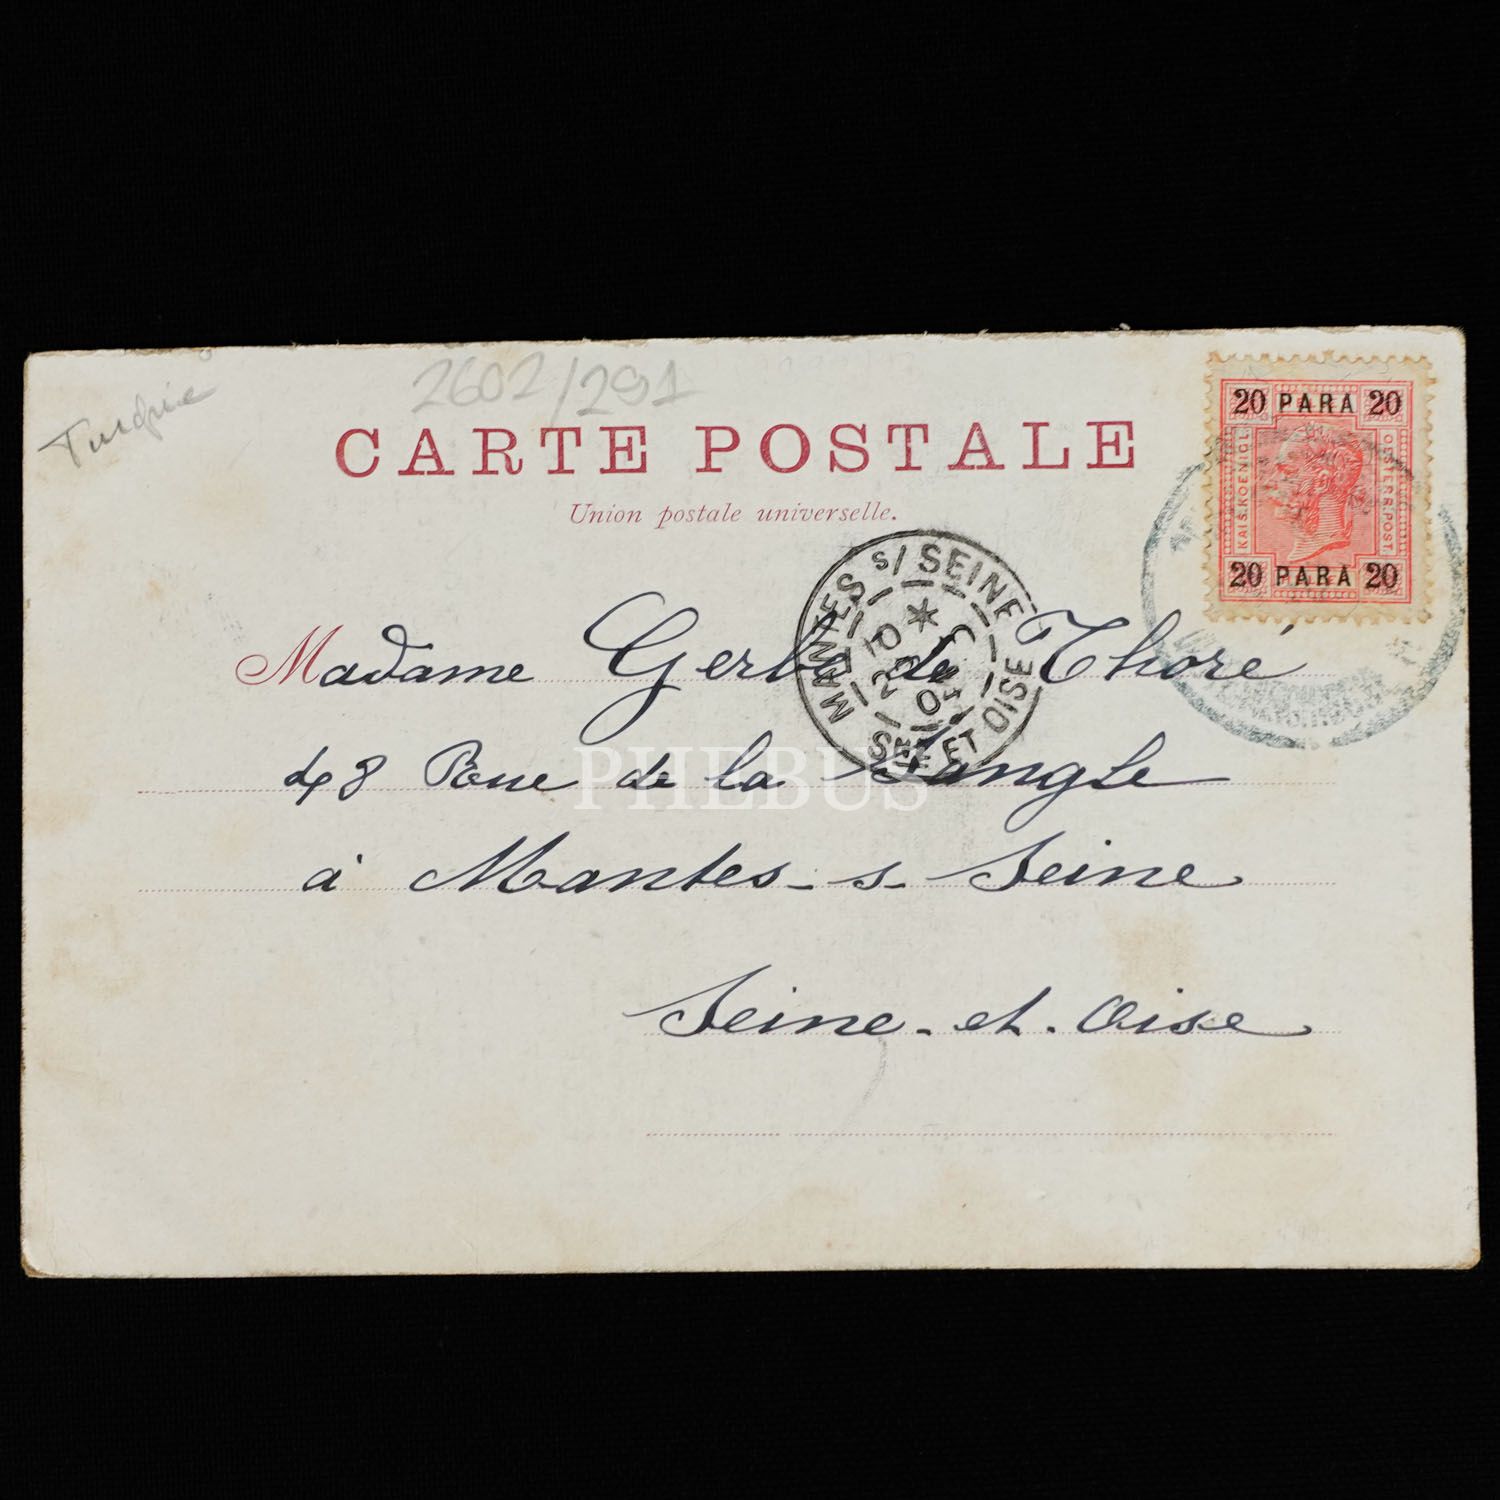 Turquie
2602/291
CARTE POSTALE
Union postale universelle.
20 PARA 20
KAIS.KOENIGL.
OESTERR.POST.
20 PARA 20
MANTES S/ SEINE
SNE ET OISE
Madame Gerbe de Thoré
48 Rue de la Sangle
à Mantes-s-Seine
Seine-et-Oise
PHEBUS